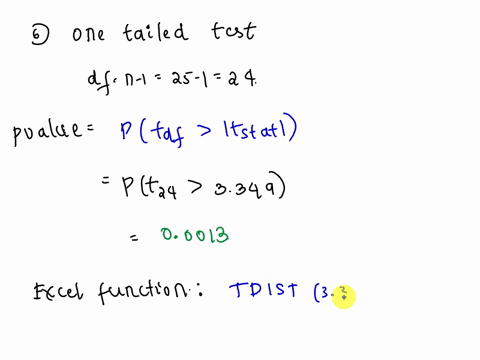 ⑥ one tailed test
df. n-1 = 25-1 = 24.
pvalue = P(tdf > |tstat|)
= P(t24 > 3.349)
= 0.0013
Excel function: TDIST (3.3